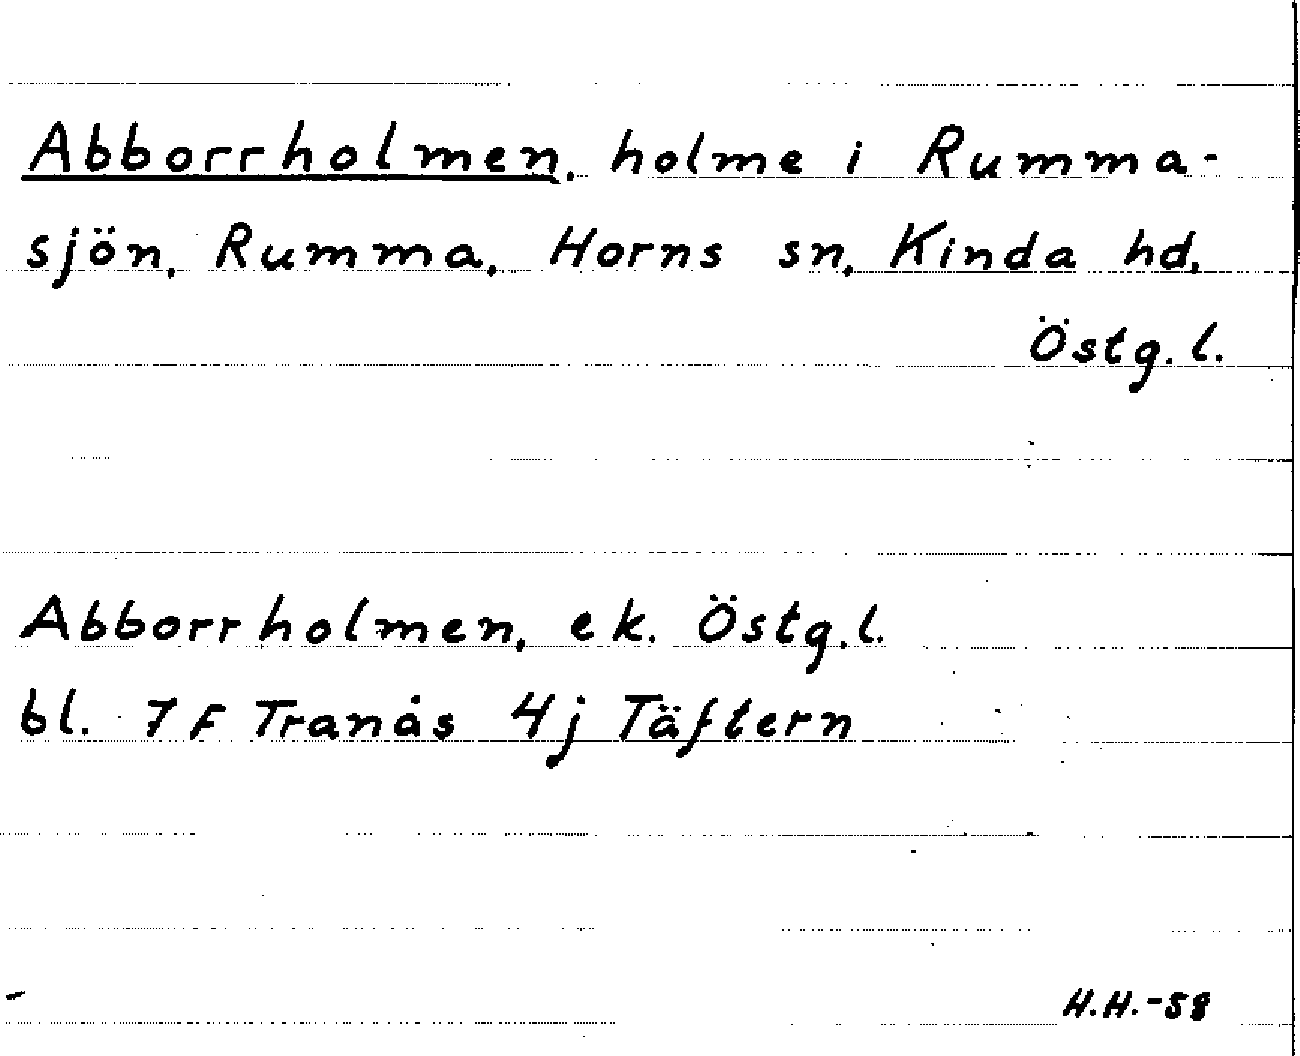 Abborrholmen, holme i Rumma-
sjön, Rumma, Horns sn, Kinda hd,
Östg. l.
Abborrholmen, ek. Östg. l.
bl. 7 F Tranås 4j Täftern
H.H.-58